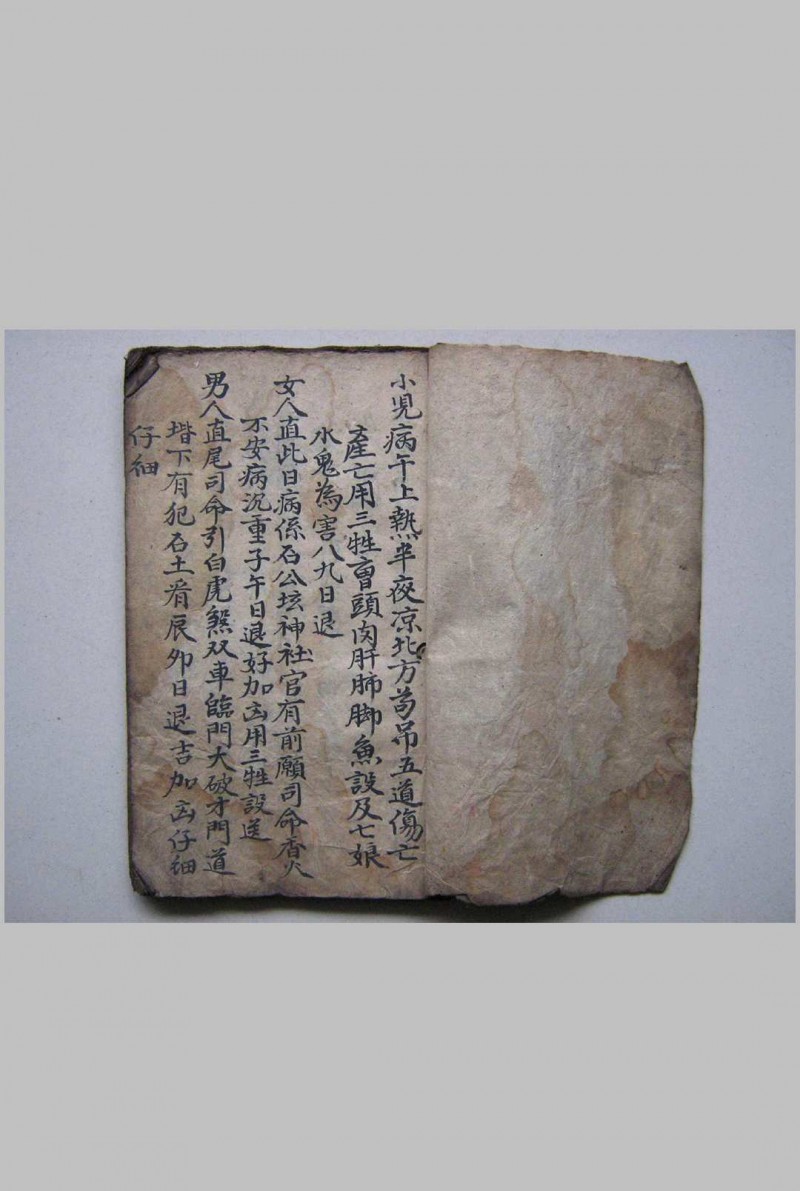 小児病午上熱半夜凉北方苟吊五道傷亡
產亡用三牲會頭肉肝肺脚魚設及七娘
水鬼為害八九日退
女人直此日病係石公坛神社官有前願司命香火
不安病沉重子午日退好加凶用三牲設送
男人直尾司命引白虎煞双車臨門大破才門道
堦下有犯石土肴辰夘日退吉加凶仔細
仔細